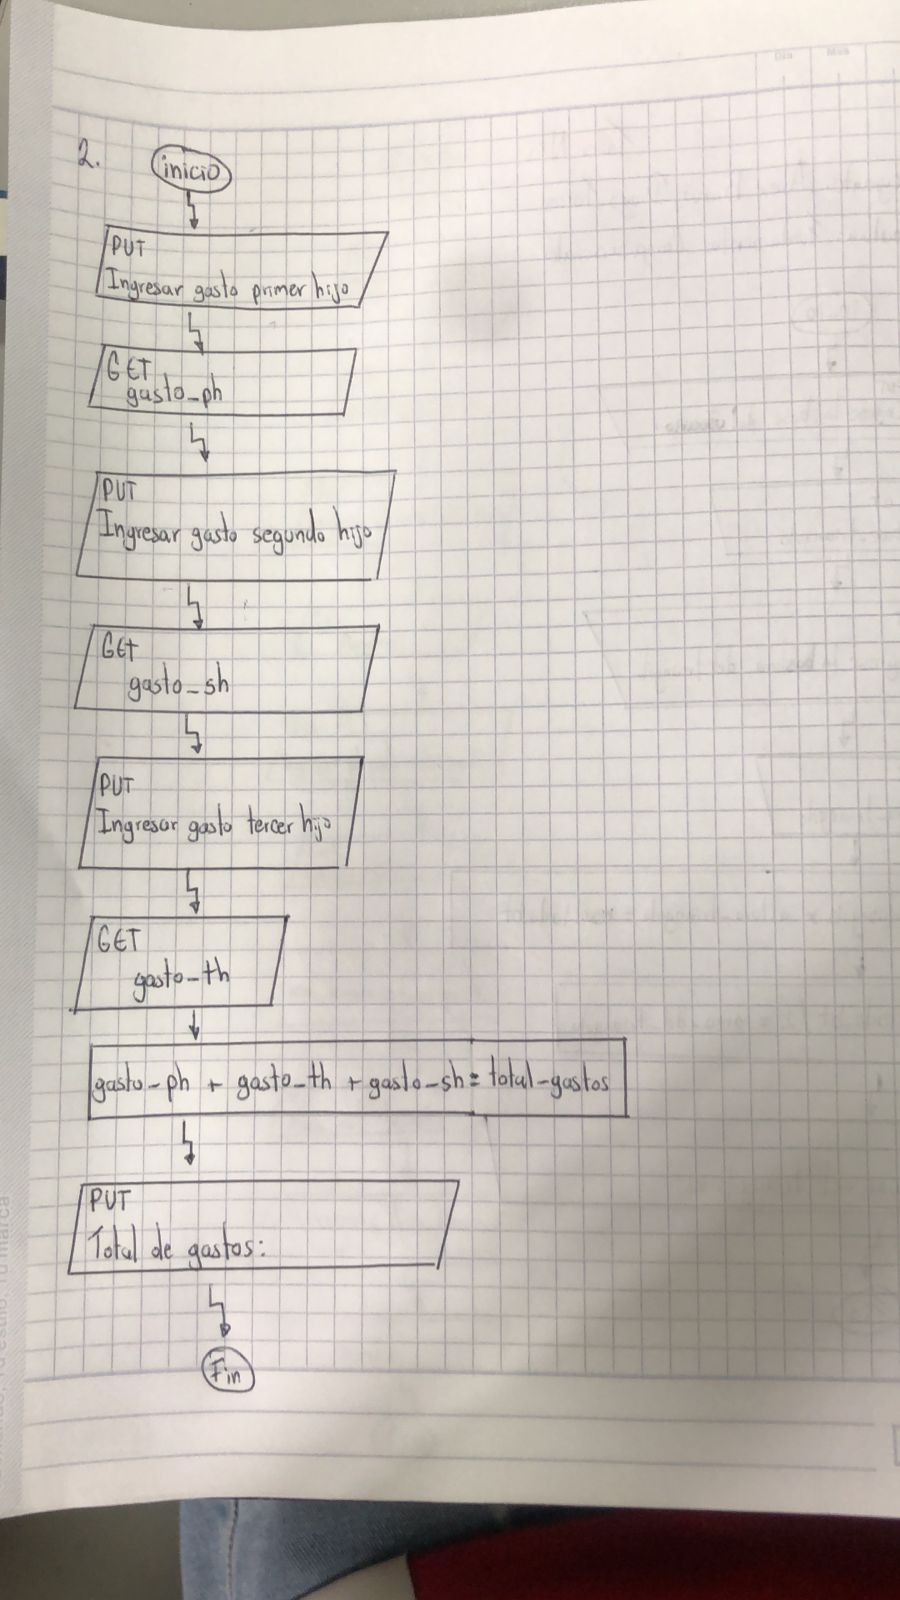 2.
inicio
PUT
Ingresar gasto primer hijo
GET
gasto_ph
PUT
Ingresar gasto segundo hijo
GET
gasto_sh
PUT
Ingresar gasto tercer hijo
GET
gasto_th
gasto_ph + gasto_th + gasto_sh = total_gastos
PUT
Total de gastos:
Fin